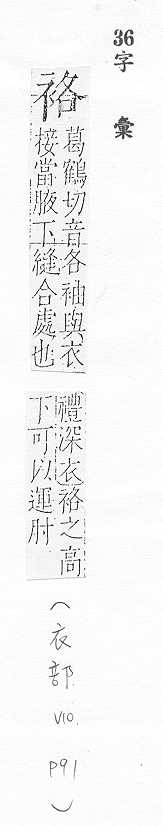 36字 彙
袼 葛鶴切音各袖與衣
接當腋下縫合處也
禮深衣袼之高
下可以運肘
(衣部 V10. P91)